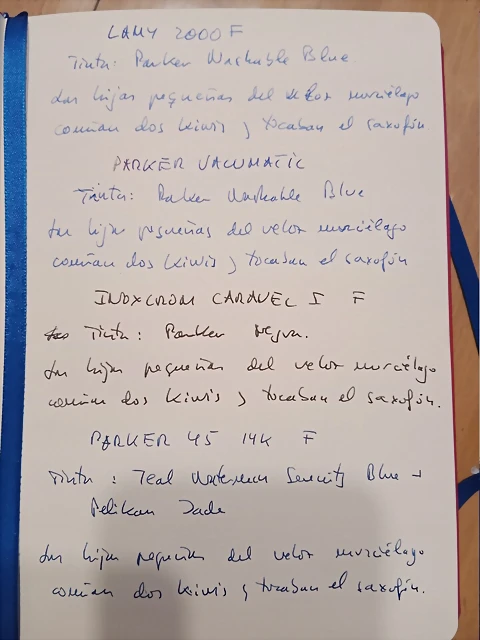 LAMY 2000 F
Tinta: Parker Washable Blue
Las hijas pequeñas del veloz murciélago
comían dos kiwis y tocaban el saxofón
PARKER VACUMATIC
Tinta: Parker Washable Blue
Las hijas pequeñas del veloz murciélago
comían dos kiwis y tocaban el saxofón
INOXCROM CARAVEL I F
Tinta: Parker Negra.
Las hijas pequeñas del veloz murciélago
comían dos kiwis y tocaban el saxofón.
PARKER 45 14K F
Tinta: Teal Waterman Serenity Blue +
Pelikan Jade
Las hijas pequeñas del veloz murciélago
comían dos kiwis y tocaban el saxofón.